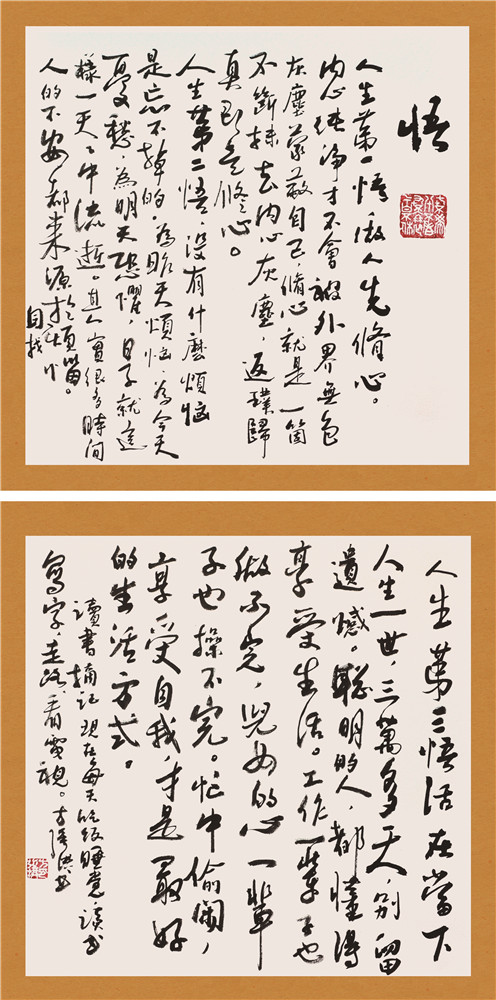 悟
人生第一悟,做人先脩心。
內心純净才不會被外界無色
灰塵蒙蔽自己,脩心就是一箇
不斷抹去內心灰塵,返璞歸
真即是脩心。
人生第二悟,沒有什麼煩惱
是忘不掉的,為昨天煩惱,為今天
憂愁,為明天恐懼,日子就這
樣一天天中流逝。其實很多時間
人的不安都來源於煩惱。
自找
人生第三悟活在當下
人生一世,三萬多天,別留
遺憾。聰明的人,都懂得
享受生活。工作一輩子也
做不完,兒女的心一輩
子也操不完。忙中偷閑,
享受自我,才是最好
的生活方式。
讀書摘記 現在每天吃飯睡覺,讀書
寫字,走路,看電視。